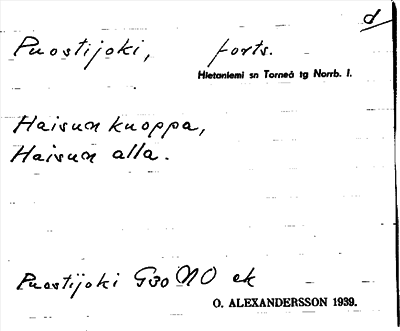 d
Puostijoki, forts.
Hietaniemi sn Torneå tg Norrb. l.
Haisun kuoppa,
Haisun alla.
Puostijoki G30 NO ek
O. ALEXANDERSSON 1939.